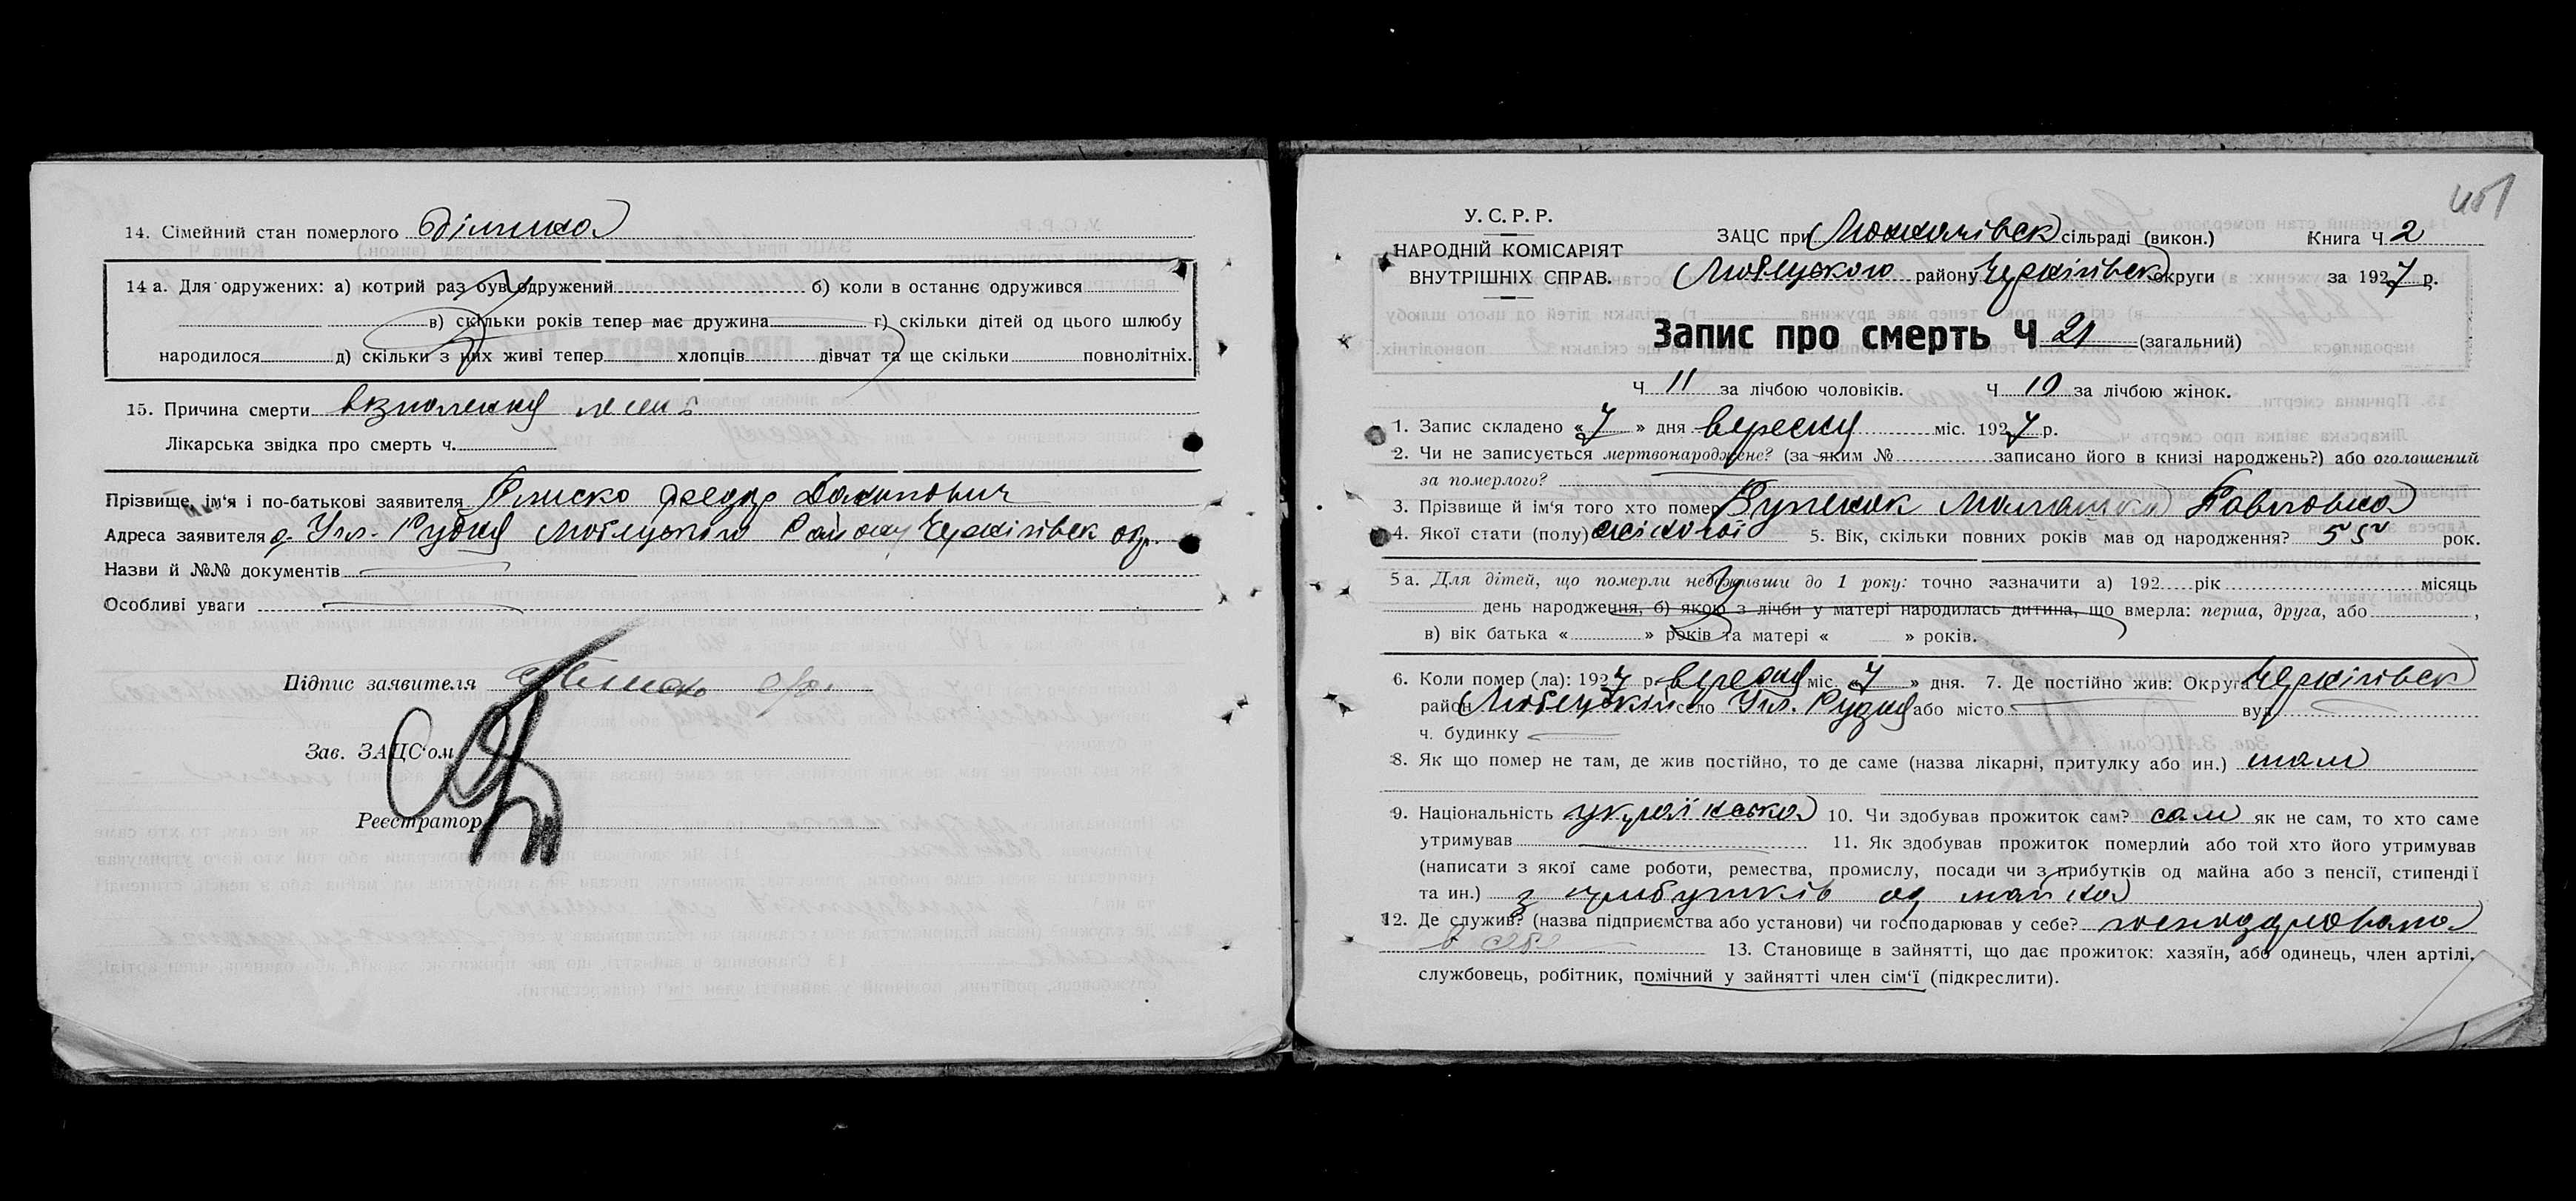 14. Сімейний стан померлого
14 а. Для одружених: а) котрий раз був одружений б) коли в останнє одружився
в) скільки років тепер має дружина г) скільки дітей од цього шлюбу
народилося д) скільки з них живі тепер хлопців дівчат та ще скільки повнолітніх.
15. Причина смерти
Лікарська звідка про смерть ч.
Прізвище, ім'я і по-батькові заявителя
Адреса заявителя Рудня Любецького Району Чернігівськ окр.
Назви й №№ документів
Особливі уваги
Підпис заявителя
Зав. ЗАЦС'ом
Реєстратор
У. С. Р. Р.
НАРОДНІЙ КОМІСАРІЯТ
ВНУТРІШНІХ СПРАВ.
ЗАЦС при сільраді (викон.) Книга Ч 2
Любецького району Чернігівськ округи за 1927 р.
Запис про смерть Ч 21 (загальний)
Ч 11 за лічбою чоловіків. Ч 10 за лічбою жінок.
1. Запис складено «7» дня вересня міс. 1927 р.
2. Чи не записується мертвонароджене? (за яким № записано його в книзі народжень?) або оголошений
за померлого?
3. Прізвище й ім'я того хто помер Павловна
4. Якої стати (полу) жіночої 5. Вік, скільки повних років мав од народження? 55 рок.
5 а. Для дітей, що померли недоживши до 1 року: точно зазначити а) 192 рік місяць
день народження, б) якою з лічби у матері народилась дитина, що вмерла: перша, друга, або ,
в) вік батька « » років та матері « » років.
6. Коли помер (ла): 1927 р вересня міс. «7» дня. 7. Де постійно жив: Округа Чернігівськ
район Любецький село Рудня або місто вул.
ч. будинку
8. Як що помер не там, де жив постійно, то де саме (назва лікарні, притулку або ин.) там
9. Національність українська 10. Чи здобував прожиток сам? сам як не сам, то хто саме
утримував 11. Як здобував прожиток померлий або той хто його утримував
(написати з якої саме роботи, ремества, промислу, посади чи з прибутків од майна або з пенсії, стипендії
та ин.) з прибутків од майна
12. Де служив? (назва підприємства або установи) чи господарював у себе? господарювала
в себе 13. Становище в зайнятті, що дає прожиток: хазяїн, або одинець, член артілі,
службовець, робітник, помічний у зайнятті член сім'ї (підкреслити).